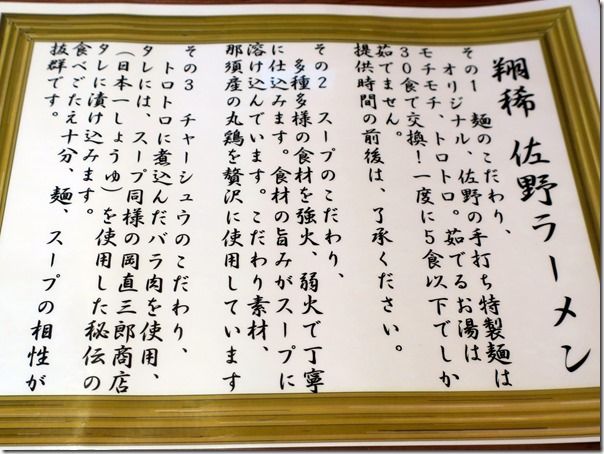 翔稀 佐野ラーメン
その１ 麺のこだわり、
オリジナル、佐野の手打ち特製麺は
モチモチ、トロトロ。茹でるお湯は
３０食で交換！一度に５食以下でしか
茹でません。
提供時間の前後は、了承ください。
その２ スープのこだわり、
多種多様の食材を強火、弱火で丁寧
に仕込みます。食材の旨みがスープに
溶け込んでいます。こだわり素材、
那須産の丸鶏を贅沢に使用しています
その３ チャーシュウのこだわり、
トロトロに煮込んだバラ肉を使用、
タレには、スープ同様の岡直三郎商店
（日本一しょうゆ）を使用した秘伝の
タレに漬け込みます。
食べごたえ十分、麺、スープの相性が
抜群です。